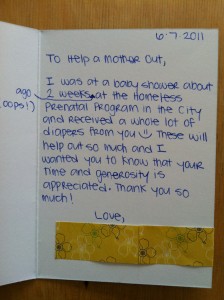 6·7·2011
To Help a Mother Out,
I was at a baby shower about
ago (oops!)
2 weeks at the Homeless
Prenatal Program in the City
and received a whole lot of
diapers from you These will
help out so much and I
wanted you to know that your
time and generosity is
appreciated. Thank you so
much!
Love,